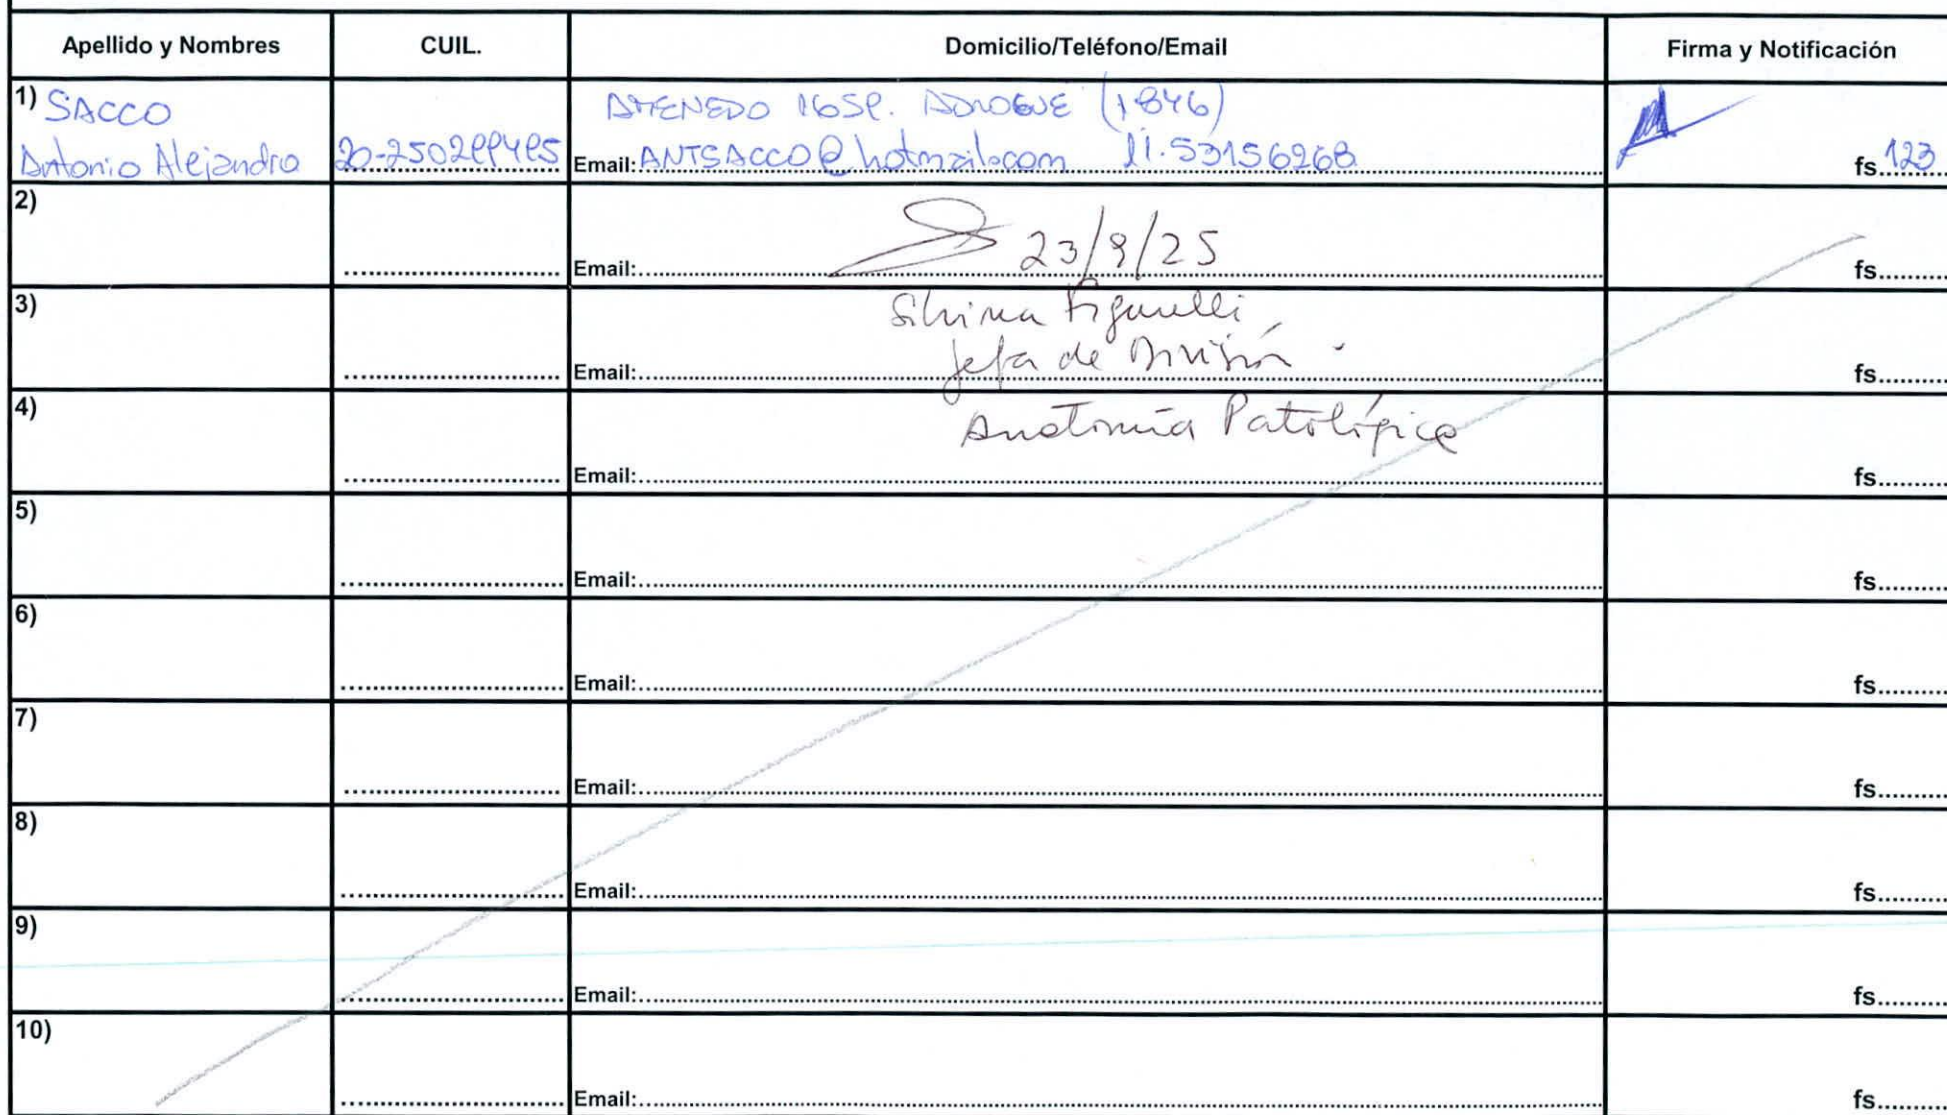 Apellido y Nombres CUIL. Domicilio/Teléfono/Email Firma y Notificación
1) SACCO ATENEDO 165P. ADROGUE (1846)
Antonio Alejandro 20-25029949-5 Email: ANTSACCO@hotmail.com 11.53156268 fs. 123
2) 23/9/25
Email: fs.
3) Silvina Figurelli
Jefa de División
Email: fs.
4) Anatomía Patológica
Email: fs.
5)
Email: fs.
6)
Email: fs.
7)
Email: fs.
8)
Email: fs.
9)
Email: fs.
10)
Email: fs.